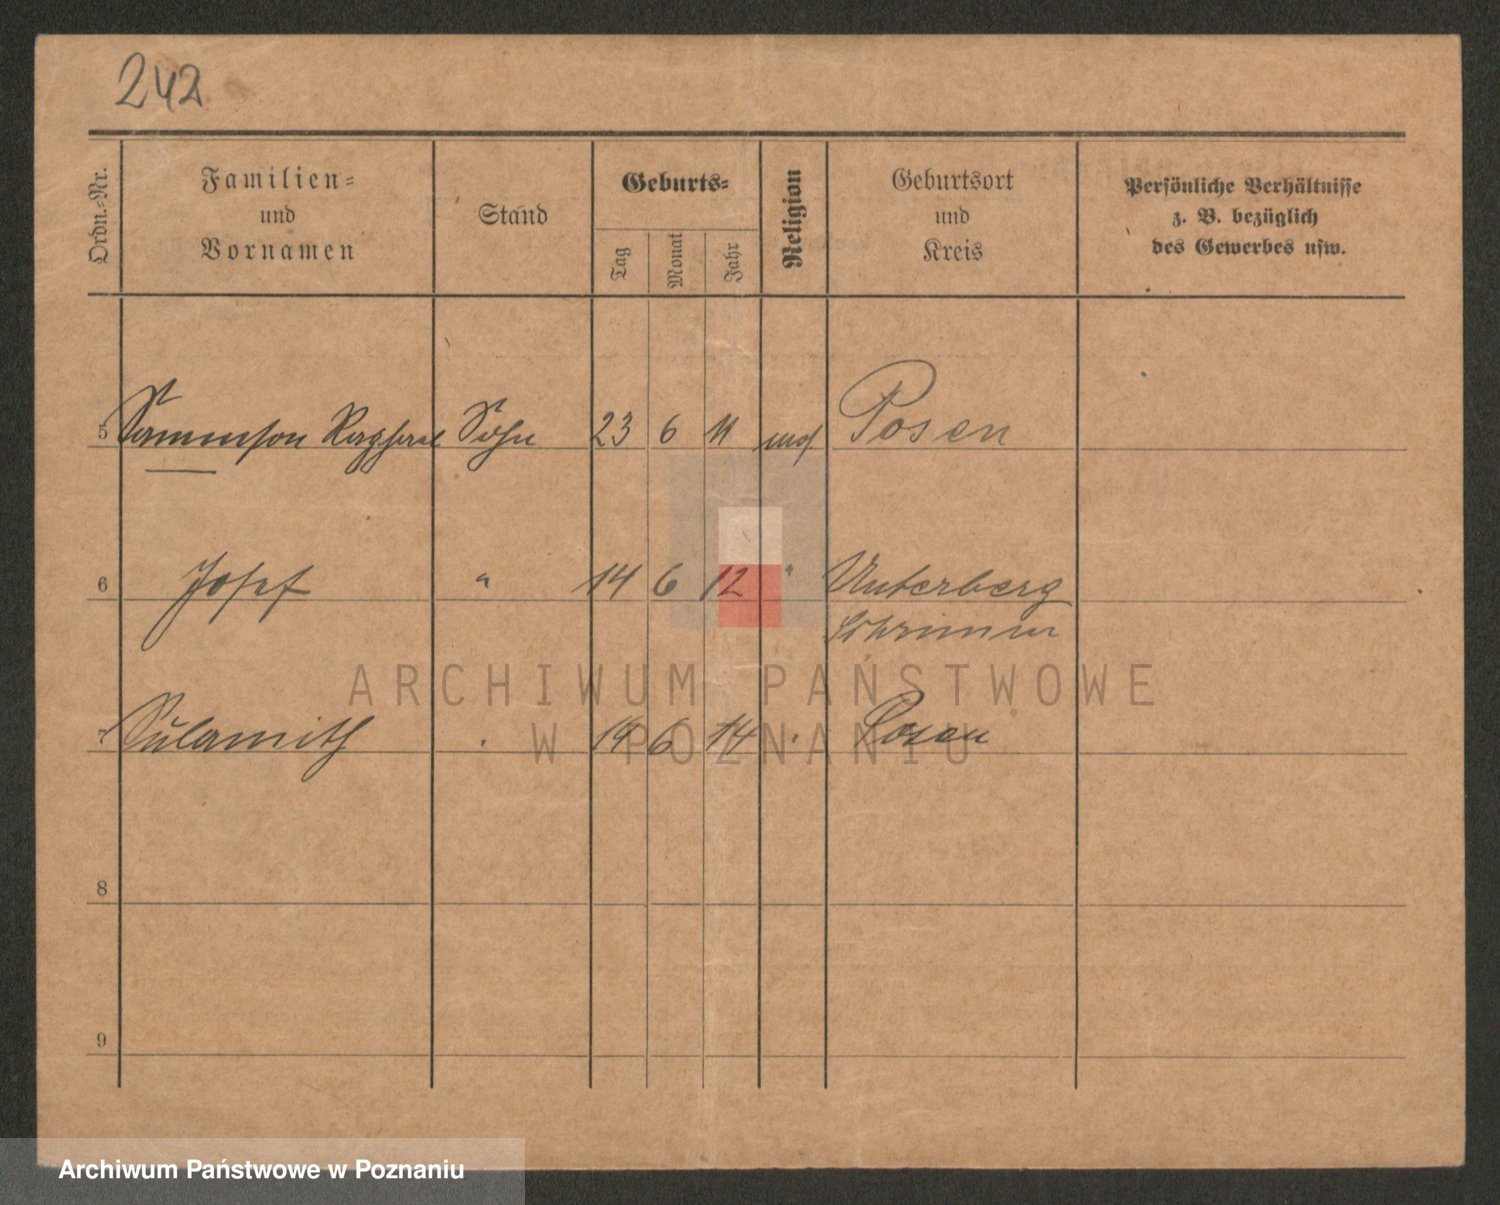 242
Ordn.-Nr.
Familien-
und
Vornamen
Stand
Geburts-
Tag
Monat
Jahr
Religion
Geburtsort
und
Kreis
Persönliche Verhältnisse
z. B. bezüglich
des Gewerbes usw.
5 Samson Raphael Sohn 23 6 11 mos Posen
6 Josef " 14 6 12 " Unterberg
Schrimm
7 Sulamith " 19 6 14 " Posen
8
9
ARCHIWUM PAŃSTWOWE
W POZNANIU
Archiwum Państwowe w Poznaniu